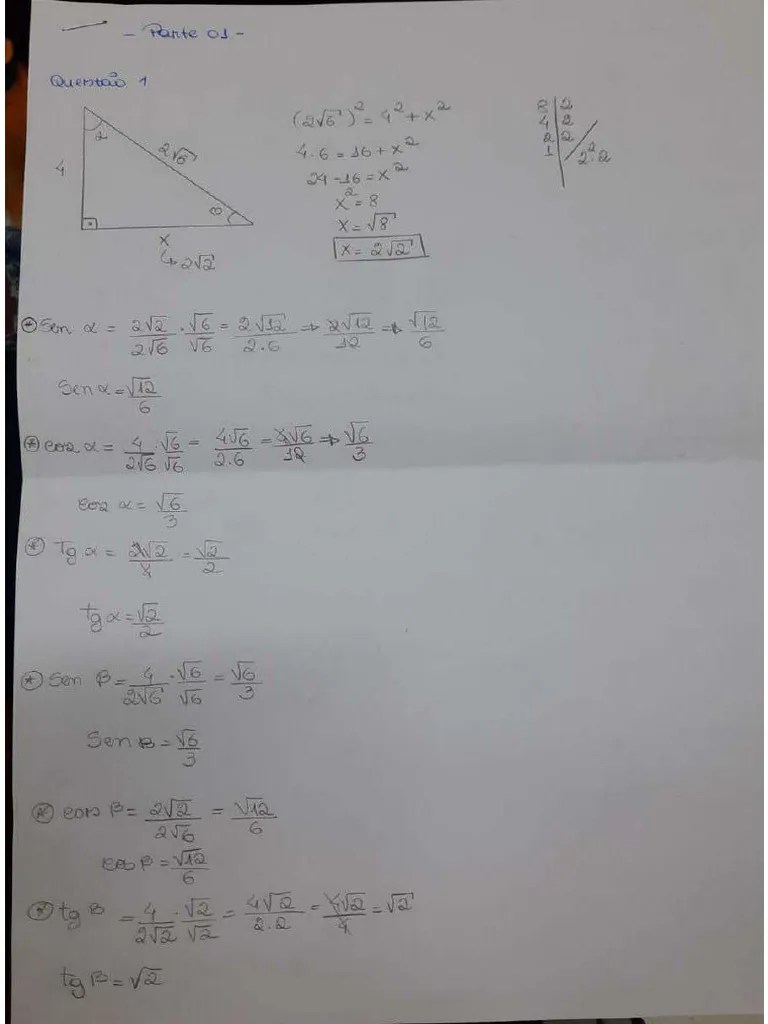 - Parte 01 -
Questão 1
4
α
2√6
β
x
↳ 2√2
(2√6)² = 4² + x²
4·6 = 16 + x²
24 - 16 = x²
x² = 8
x = √8
x = 2√2
8 | 2
4 | 2
2 | 2
1 | 2²·2
* Sen α = 2√2/2√6 · √6/√6 = 2√12/2·6 → 2√12/12 → √12/6
Sen α = √12/6
* cos α = 4/2√6 · √6/√6 = 4√6/2·6 = 4√6/12 → √6/3
cos α = √6/3
* Tg α = 2√2/4 = √2/2
tg α = √2/2
* Sen β = 4/2√6 · √6/√6 = √6/3
Sen β = √6/3
* cos β = 2√2/2√6 = √12/6
cos β = √12/6
* tg β = 4/2√2 · √2/√2 = 4√2/2·2 = 4√2/4 = √2
tg β = √2